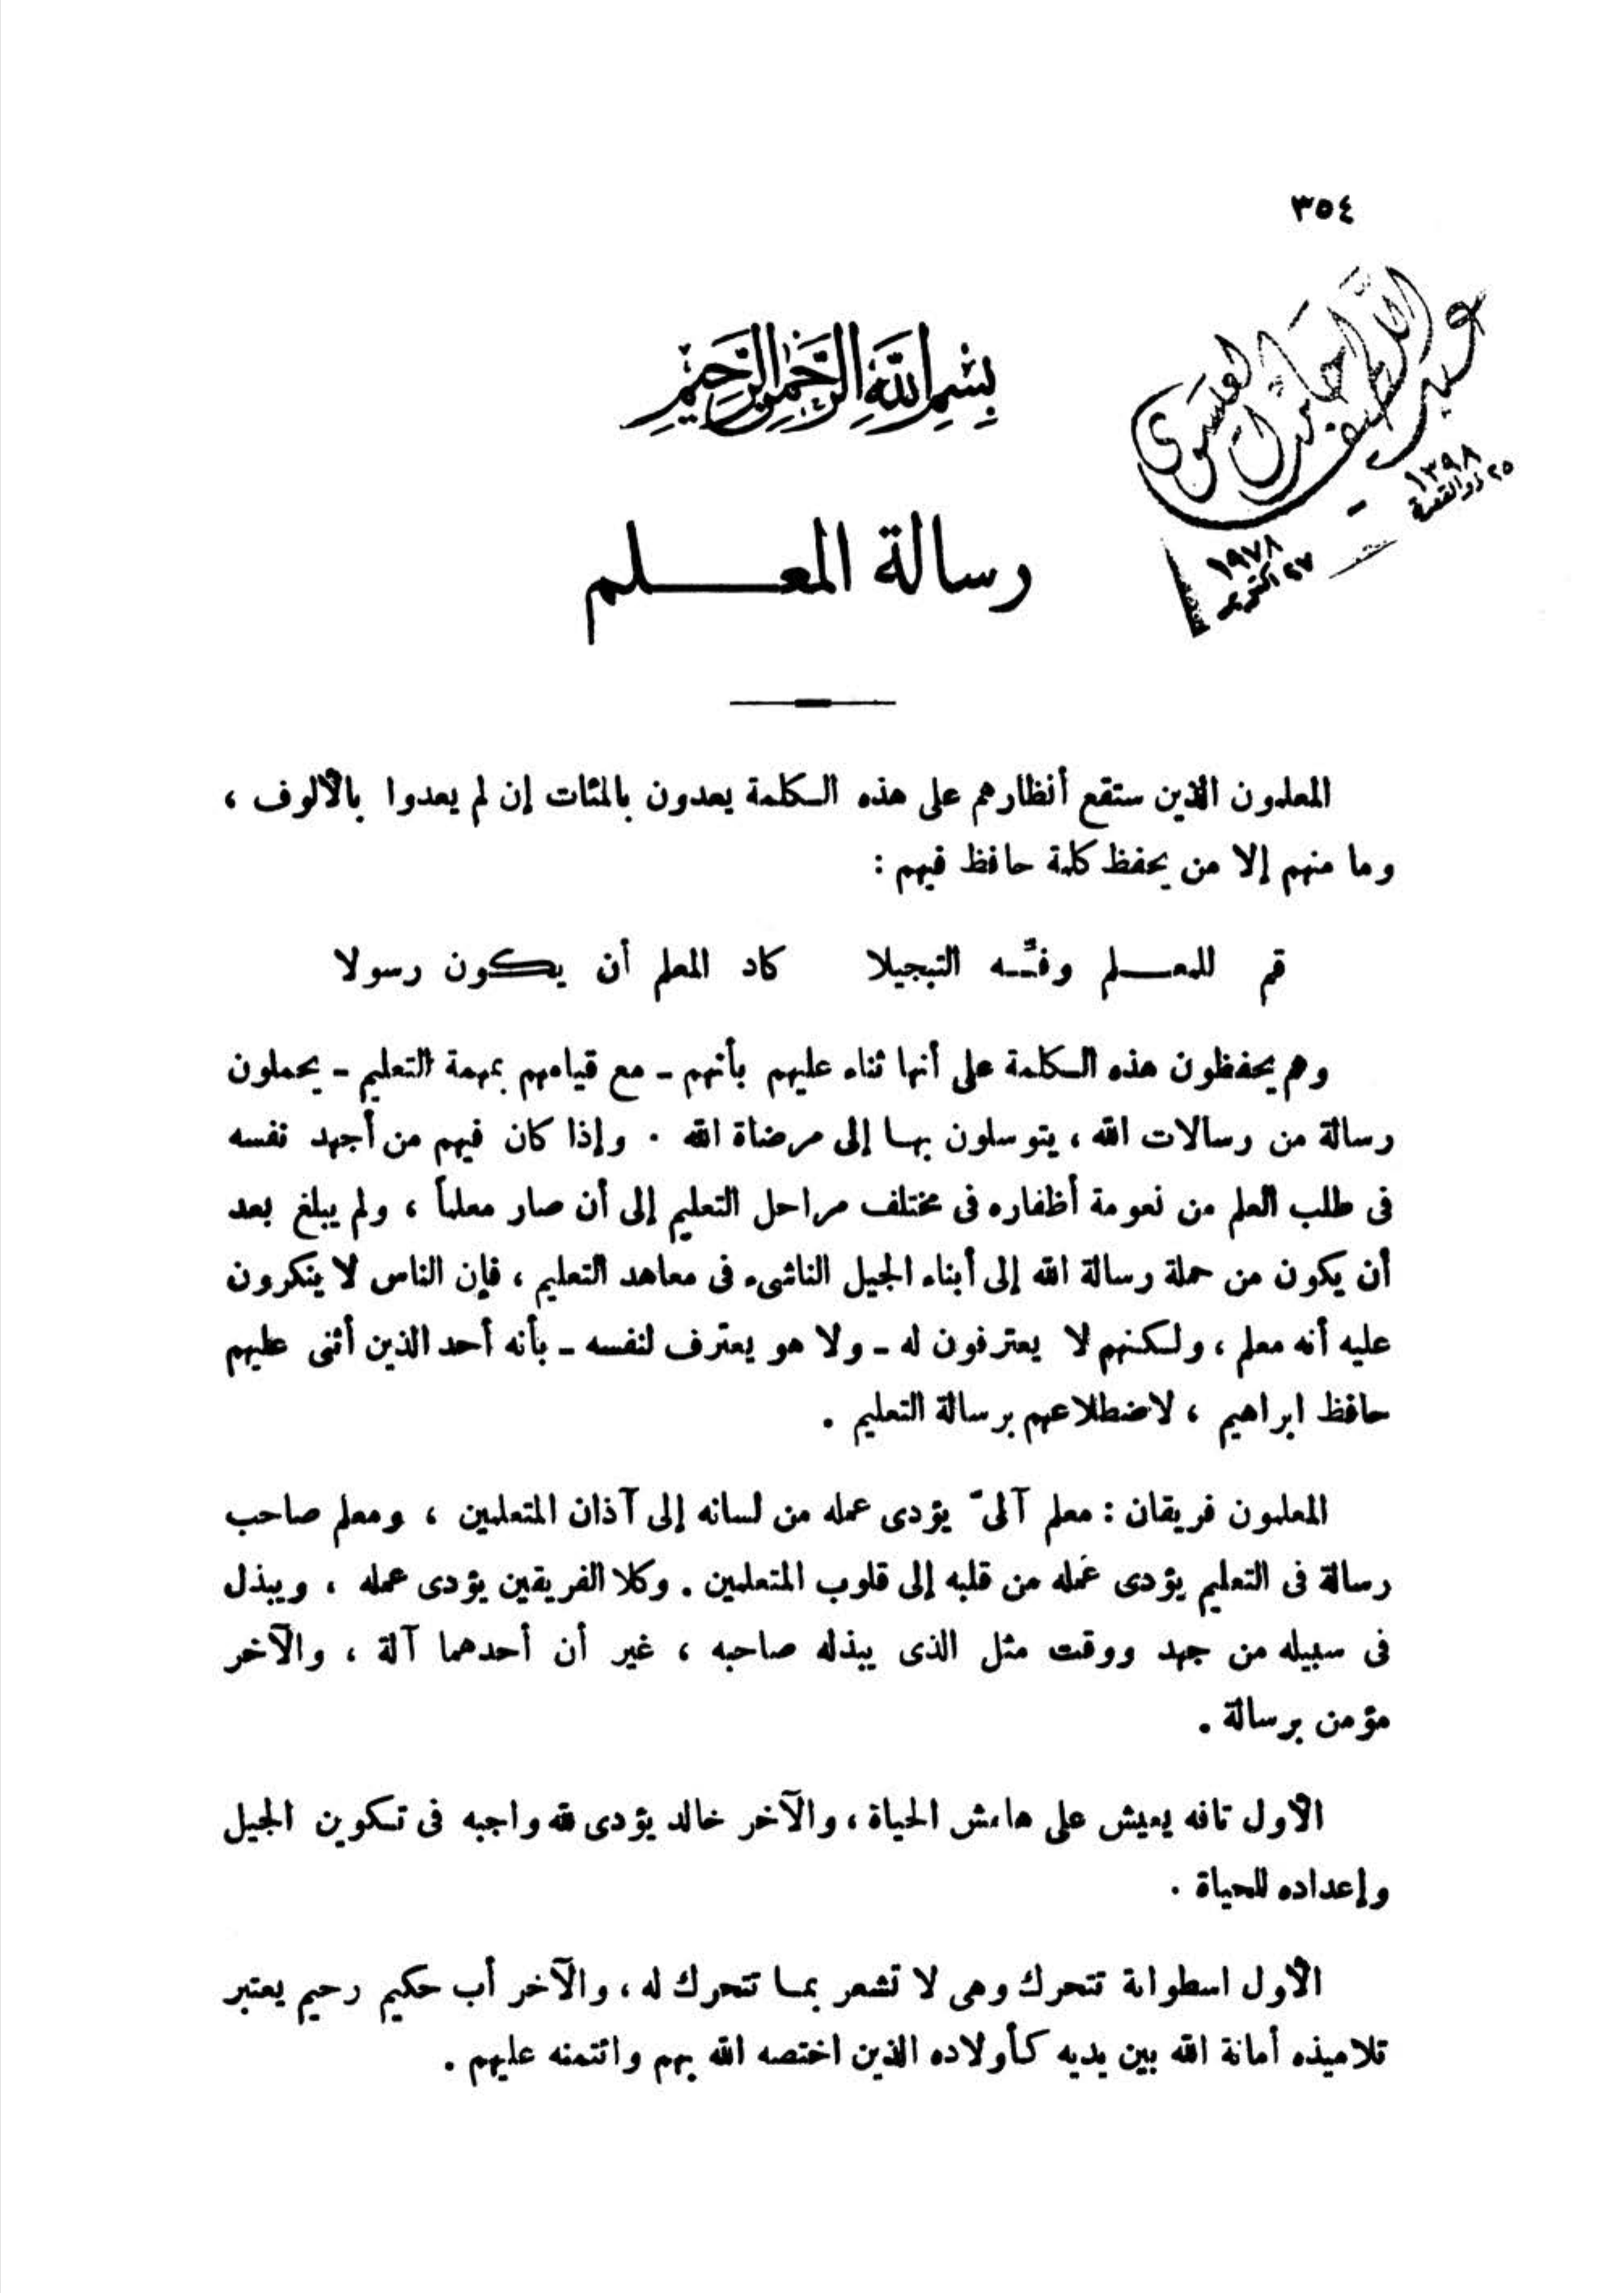 ٣٥٤
بِسْمِ اللَّهِ الرَّحْمَٰنِ الرَّحِيمِ
رسالة المعـــــلم
المعلمون الذين ستقع أنظارهم على هذه الـكلمة يعدون بالمئات إن لم يعدوا بالألوف ،
وما منهم إلا من يحفظ كلمة حافظ فيهم :
قم للمعـــلم وفـِّـه التبجيلا كاد المعلم أن يـكون رسولا
وهم يحفظون هذه الـكلمة على أنها ثناء عليهم بأنهم ـ مع قيامهم بمهمة التعليم ـ يحملون
رسالة من رسالات الله ، يتوسلون بها إلى مرضاة الله . وإذا كان فيهم من أجهد نفسه
فى طلب العلم من نعومة أظفاره فى مختلف مراحل التعليم إلى أن صار معلماً ، ولم يبلغ بعد
أن يكون من حملة رسالة الله إلى أبناء الجيل الناشىء فى معاهد التعليم ، فإن الناس لا ينكرون
عليه أنه معلم ، ولـكنهم لا يعترفون له ـ ولا هو يعترف لنفسه ـ بأنه أحد الذين أثنى عليهم
حافظ ابراهيم ، لاضطلاعهم برسالة التعليم .
المعلمون فريقان : معلم آلىّ يؤدى عمله من لسانه إلى آذان المتعلمين ، ومعلم صاحب
رسالة فى التعليم يؤدى عَمله من قلبه إلى قلوب المتعلمين . وكلا الفريقين يؤدى عمله ، ويبذل
فى سبيله من جهد ووقت مثل الذى يبذله صاحبه ، غير أن أحدهما آلة ، والآخر
مؤمن برسالة .
الأول تافه يعيش على هامش الحياة ، والآخر خالد يؤدى لله واجبه فى تـكوين الجيل
وإعداده للحياة .
الأول اسطوانة تتحرك وهى لا تشعر بمـا تتحرك له ، والآخر أب حكيم رحيم يعتبر
تلاميذه أمانة الله بين يديه كـأولاده الذين اختصه الله بهم وائتمنه عليهم .
١٣٩٨
٢٥ ذو القعدة
١٩٧٨
٢٧ اكتوبر